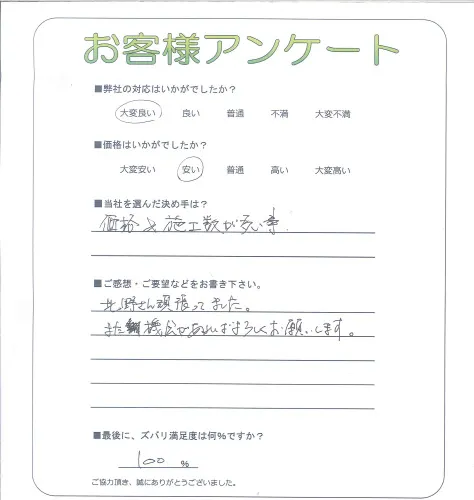 お客様アンケート
■弊社の対応はいかがでしたか？
大変良い 良い 普通 不満 大変不満
■価格はいかがでしたか？
大変安い 安い 普通 高い 大変高い
■当社を選んだ決め手は？
価格と施工数が多い事
■ご感想・ご要望などをお書き下さい。
北野さん頑張ってました。
また機会があればよろしくお願いします。
■最後に、ズバリ満足度は何%ですか？
100 %
ご協力頂き、誠にありがとうございました。